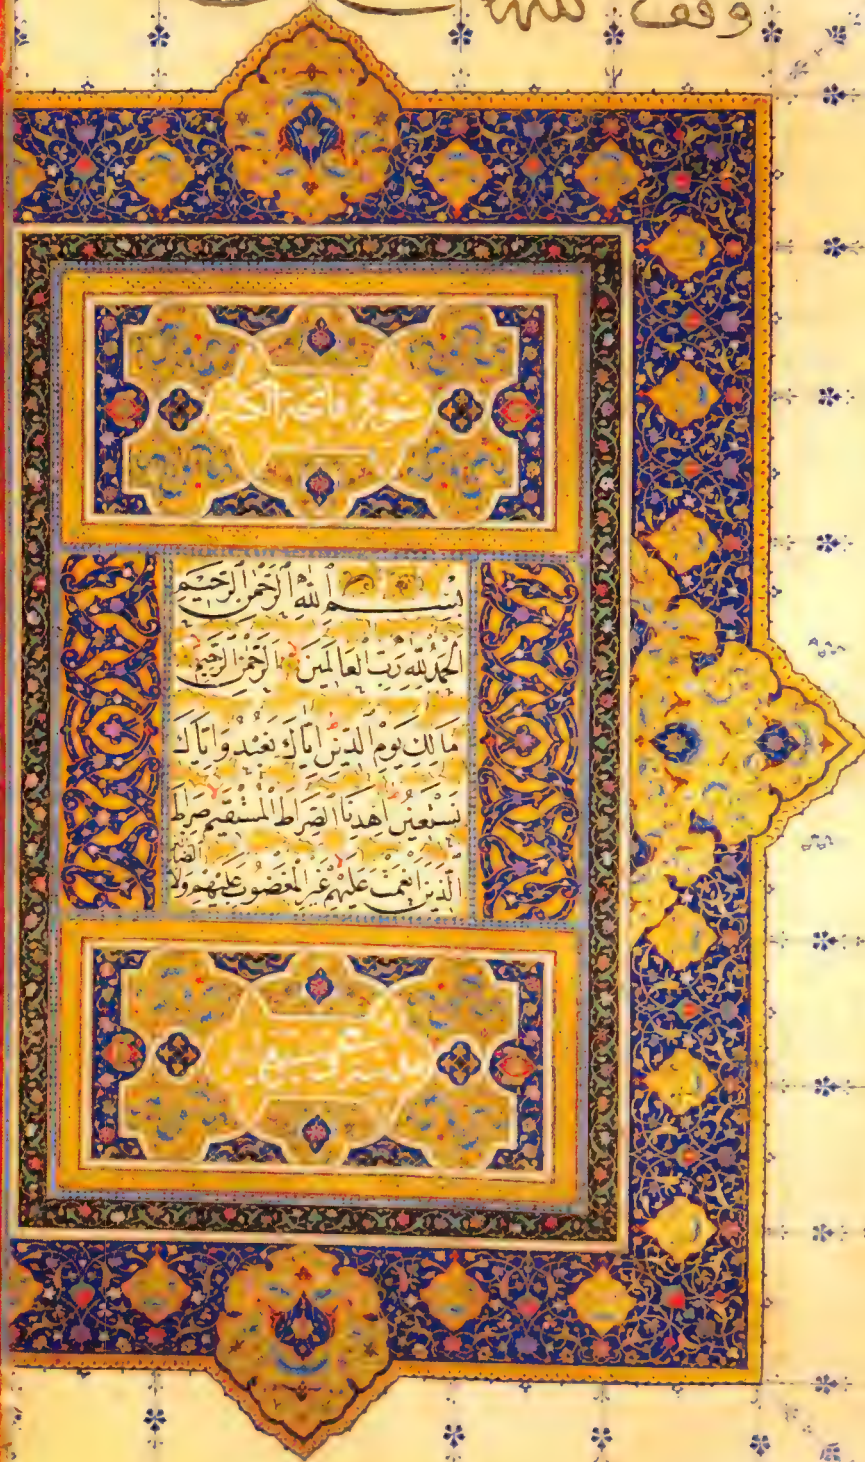 وقف لله
سورة فاتحة الكتاب
بِسْمِ ٱللَّهِ ٱلرَّحْمٰنِ ٱلرَّحِيْمِ
اَلْحَمْدُ لِلّٰهِ رَبِّ الْعَالَمِيْنَ اَلرَّحْمٰنِ الرَّحِيْمِ
مَالِكِ يَوْمِ الدِّيْنِ اِيَّاكَ نَعْبُدُ وَاِيَّاكَ
نَسْتَعِيْنُ اِهْدِنَا الصِّرَاطَ الْمُسْتَقِيْمَ صِرَاطَ
الَّذِيْنَ اَنْعَمْتَ عَلَيْهِمْ غَيْرِ الْمَغْضُوْبِ عَلَيْهِمْ وَلَا الضَّا